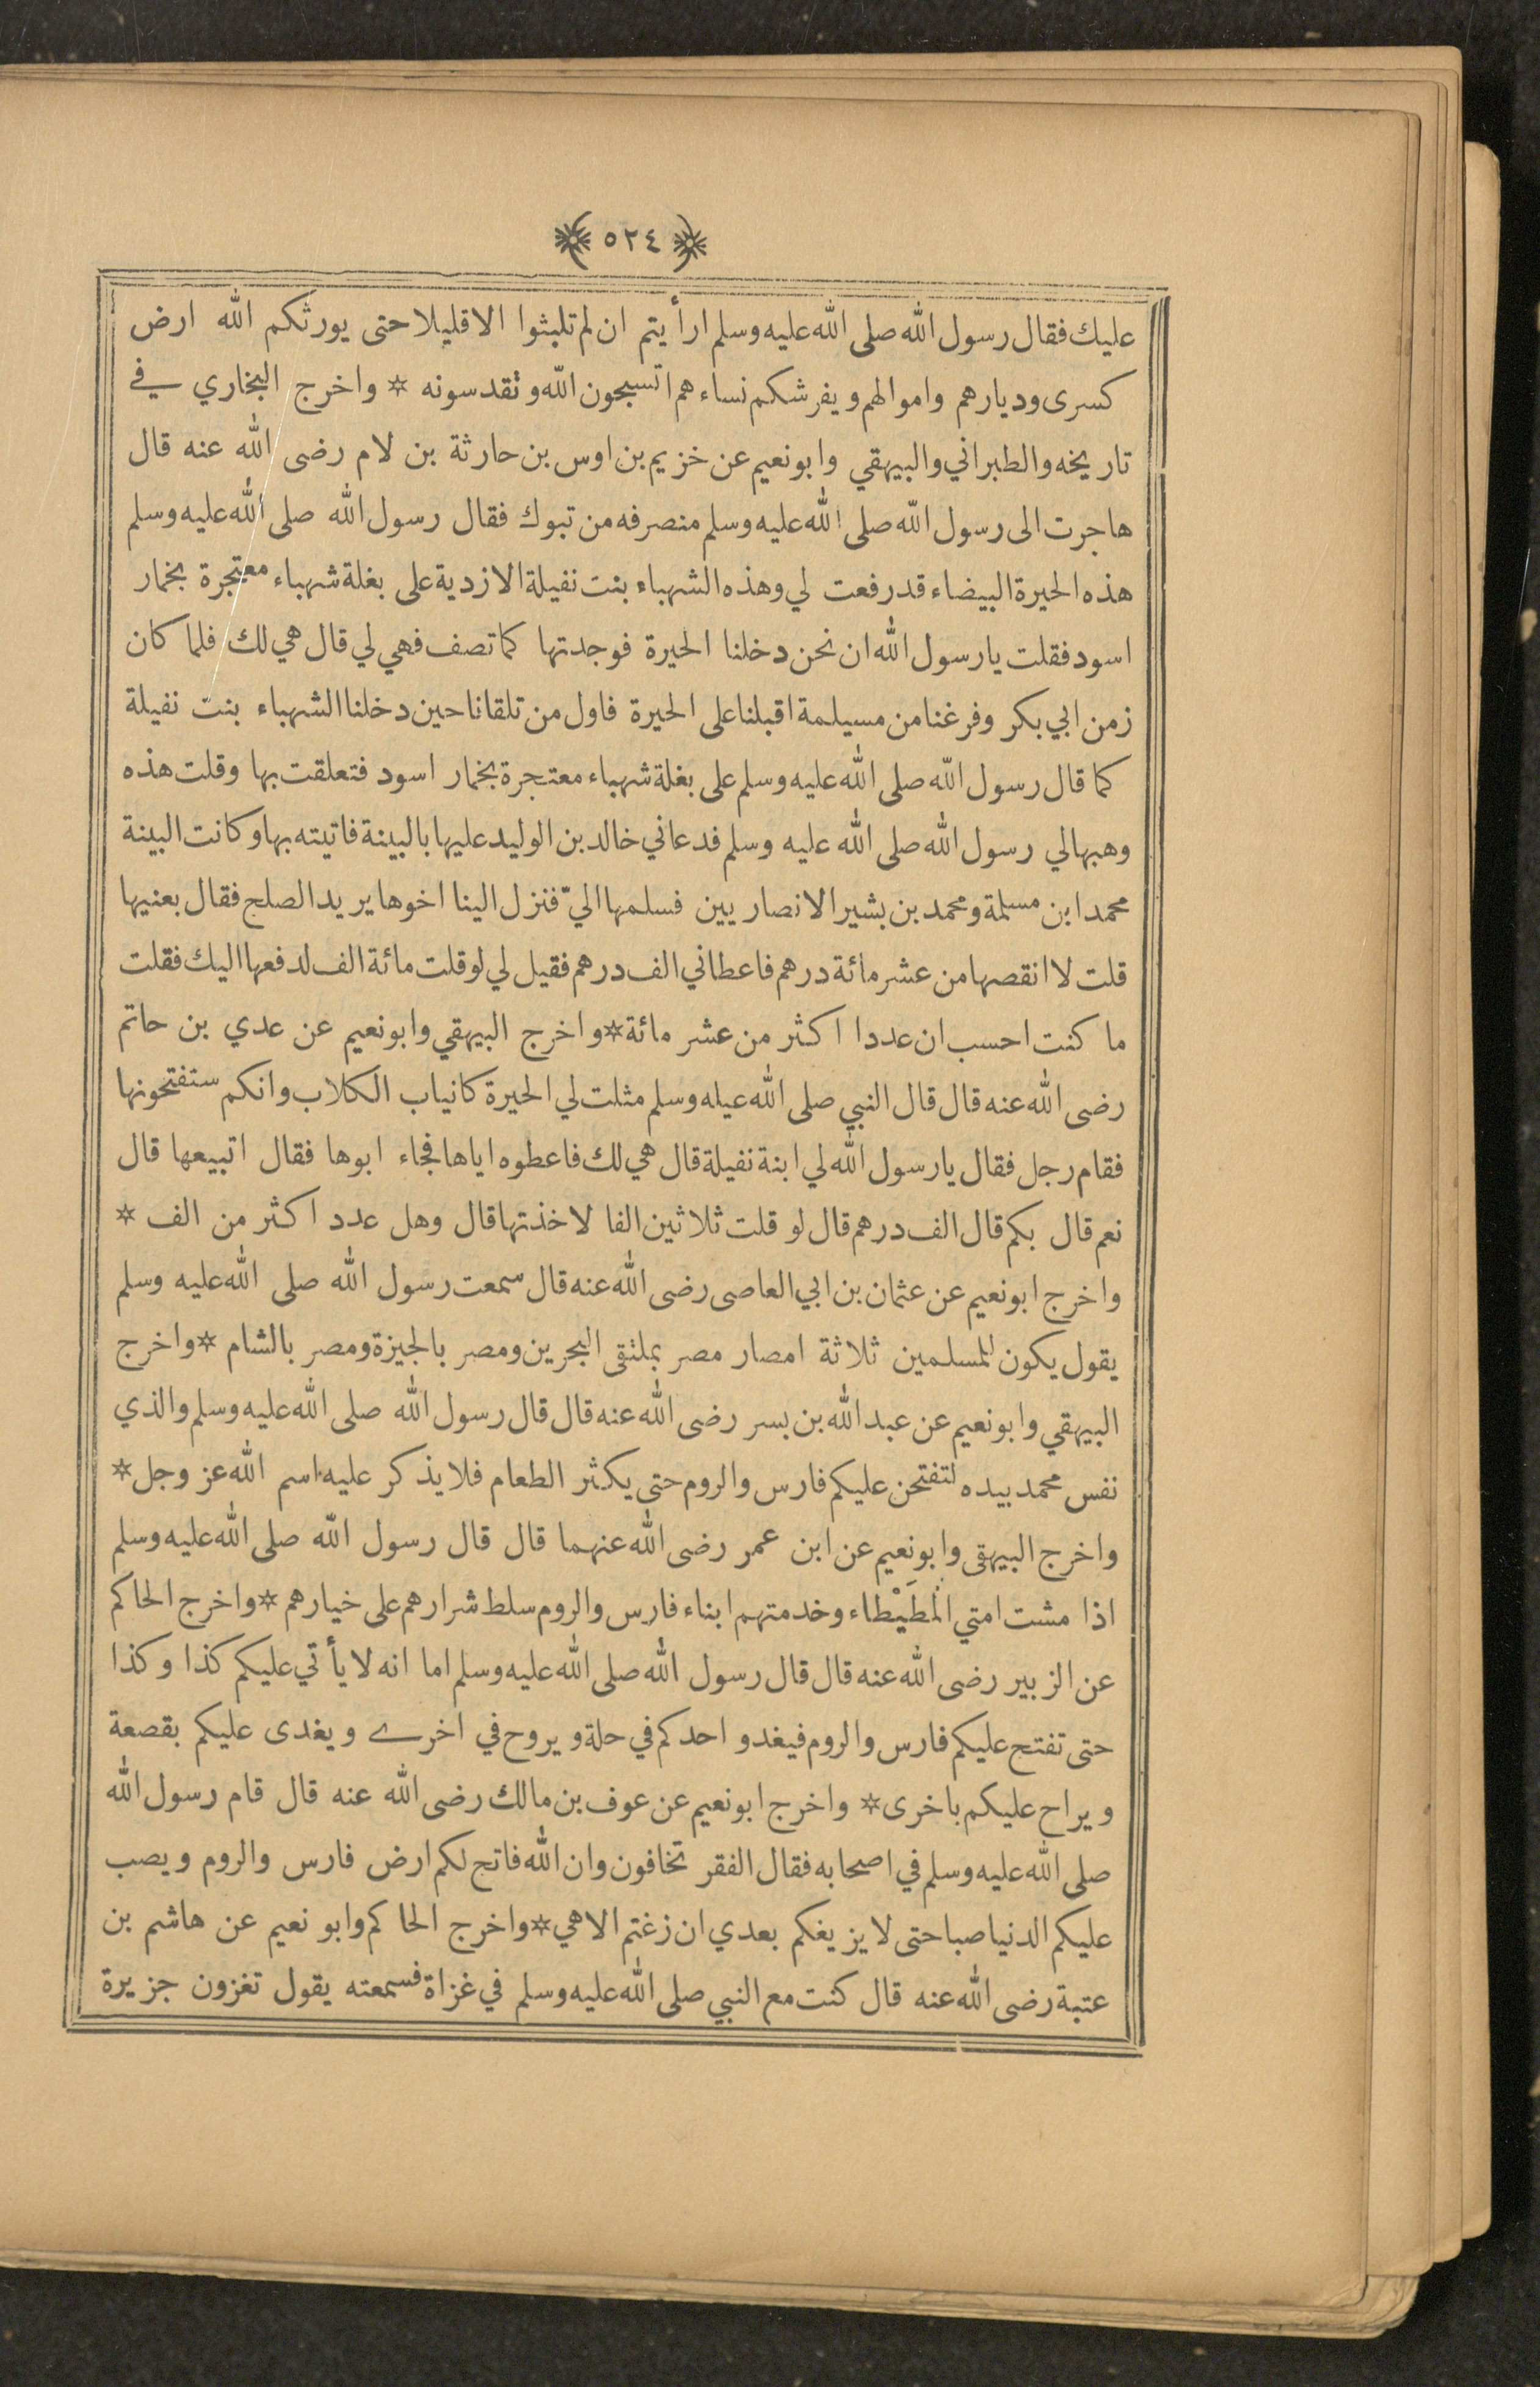 ﴿ ٥٢٤ ﴾
عليك فقال رسول الله صلى الله عليه وسلم ارأيتم ان لم تلبثوا الا قليلا حتى يورثكم الله ارض
كسرى وديارهم واموالهم ويفرشكم نساءهم اتسبحون الله وتقدسونه * واخرج البخاري في
تاريخه والطبراني والبيهقي وابونعيم عن خزيم بن اوس بن حارثة بن لام رضى الله عنه قال
هاجرت الى رسول الله صلى الله عليه وسلم منصرفه من تبوك فقال رسول الله صلى الله عليه وسلم
هذه الحيرة البيضاء قد رفعت لي وهذه الشهباء بنت نفيلة الازدية على بغلة شهباء معتجرة بخمار
اسود فقلت يارسول الله ان نحن دخلنا الحيرة فوجدتها كما تصف فهي لي قال هي لك فلما كان
زمن ابي بكر وفرغنا من مسيلمة اقبلنا على الحيرة فاول من تلقانا حين دخلنا الشهباء بنت نفيلة
كما قال رسول الله صلى الله عليه وسلم على بغلة شهباء معتجرة بخمار اسود فتعلقت بها وقلت هذه
وهبها لي رسول الله صلى الله عليه وسلم فدعاني خالد بن الوليد عليها بالبينة فاتيته بها وكانت البينة
محمد ابن مسلمة ومحمد بن بشير الانصاريين فسلمها اليّ فنزل الينا اخوها يريد الصلح فقال بعنيها
قلت لا انقصها من عشر مائة درهم فاعطاني الف درهم فقيل لي لو قلت مائة الف لدفعها اليك فقلت
ما كنت احسب ان عددا اكثر من عشر مائة * واخرج البيهقي وابونعيم عن عدي بن حاتم
رضى الله عنه قال قال النبي صلى الله عيله وسلم مثلت لي الحيرة كانياب الكلاب وانكم ستفتحونها
فقام رجل فقال يارسول الله لي ابنة نفيلة قال هي لك فاعطوه اياها فجاء ابوها فقال اتبيعها قال
نعم قال بكم قال الف درهم قال لو قلت ثلاثين الفا لاخذتها قال وهل عدد اكثر من الف *
واخرج ابونعيم عن عثمان بن ابي العاصى رضى الله عنه قال سمعت رسول الله صلى الله عليه وسلم
يقول يكون للمسلمين ثلاثة امصار مصر بملتقى البحرين ومصر بالجيزة ومصر بالشام * واخرج
البيهقي وابونعيم عن عبد الله بن بسر رضى الله عنه قال قال رسول الله صلى الله عليه وسلم والذي
نفس محمد بيده لتفتحن عليكم فارس والروم حتى يكثر الطعام فلا يذكر عليه اسم الله عز وجل *
واخرج البيهقى وابونعيم عن ابن عمر رضى الله عنهما قال قال رسول الله صلى الله عليه وسلم
اذا مشت امتي المُطَيْطاء وخدمتهم ابناء فارس والروم سلط شرارهم على خيارهم * واخرج الحاكم
عن الزبير رضى الله عنه قال قال رسول الله صلى الله عليه وسلم اما انه لا يأتي عليكم كذا وكذا
حتى تفتح عليكم فارس والروم فيغدو احدكم في حلة ويروح في اخرى ويغدى عليكم بقصعة
ويراح عليكم باخرى * واخرج ابونعيم عن عوف بن مالك رضى الله عنه قال قام رسول الله
صلى الله عليه وسلم في اصحابه فقال الفقر تخافون وان الله فاتح لكم ارض فارس والروم ويصب
عليكم الدنيا صبا حتى لا يزيغكم بعدي ان زغتم الا هي * واخرج الحاكم وابو نعيم عن هاشم بن
عتبة رضى الله عنه قال كنت مع النبي صلى الله عليه وسلم في غزاة فسمعته يقول تغزون جزيرة